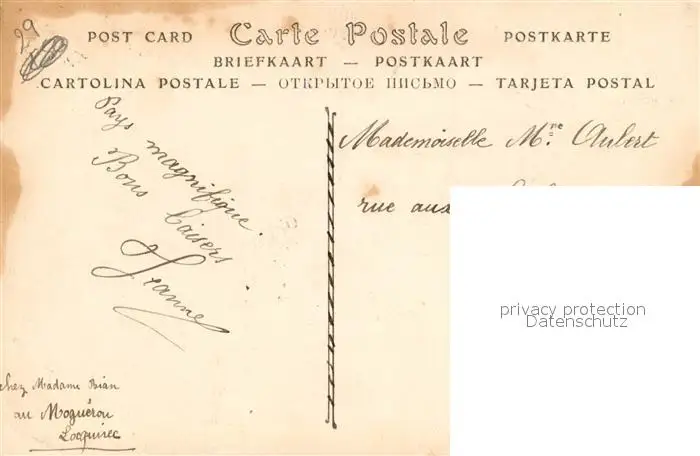 29
POST CARD Carte Postale POSTKARTE
BRIEFKAART — POSTKAART
CARTOLINA POSTALE — ОТКРЫТОЕ ПИСЬМО — TARJETA POSTAL
Pays magnifique.
Bons baisers
Jeanne
Mademoiselle M.ne Aubert
rue aux
privacy protection
Datenschutz
chez Madame Bian
au Moguérou
Locquirec